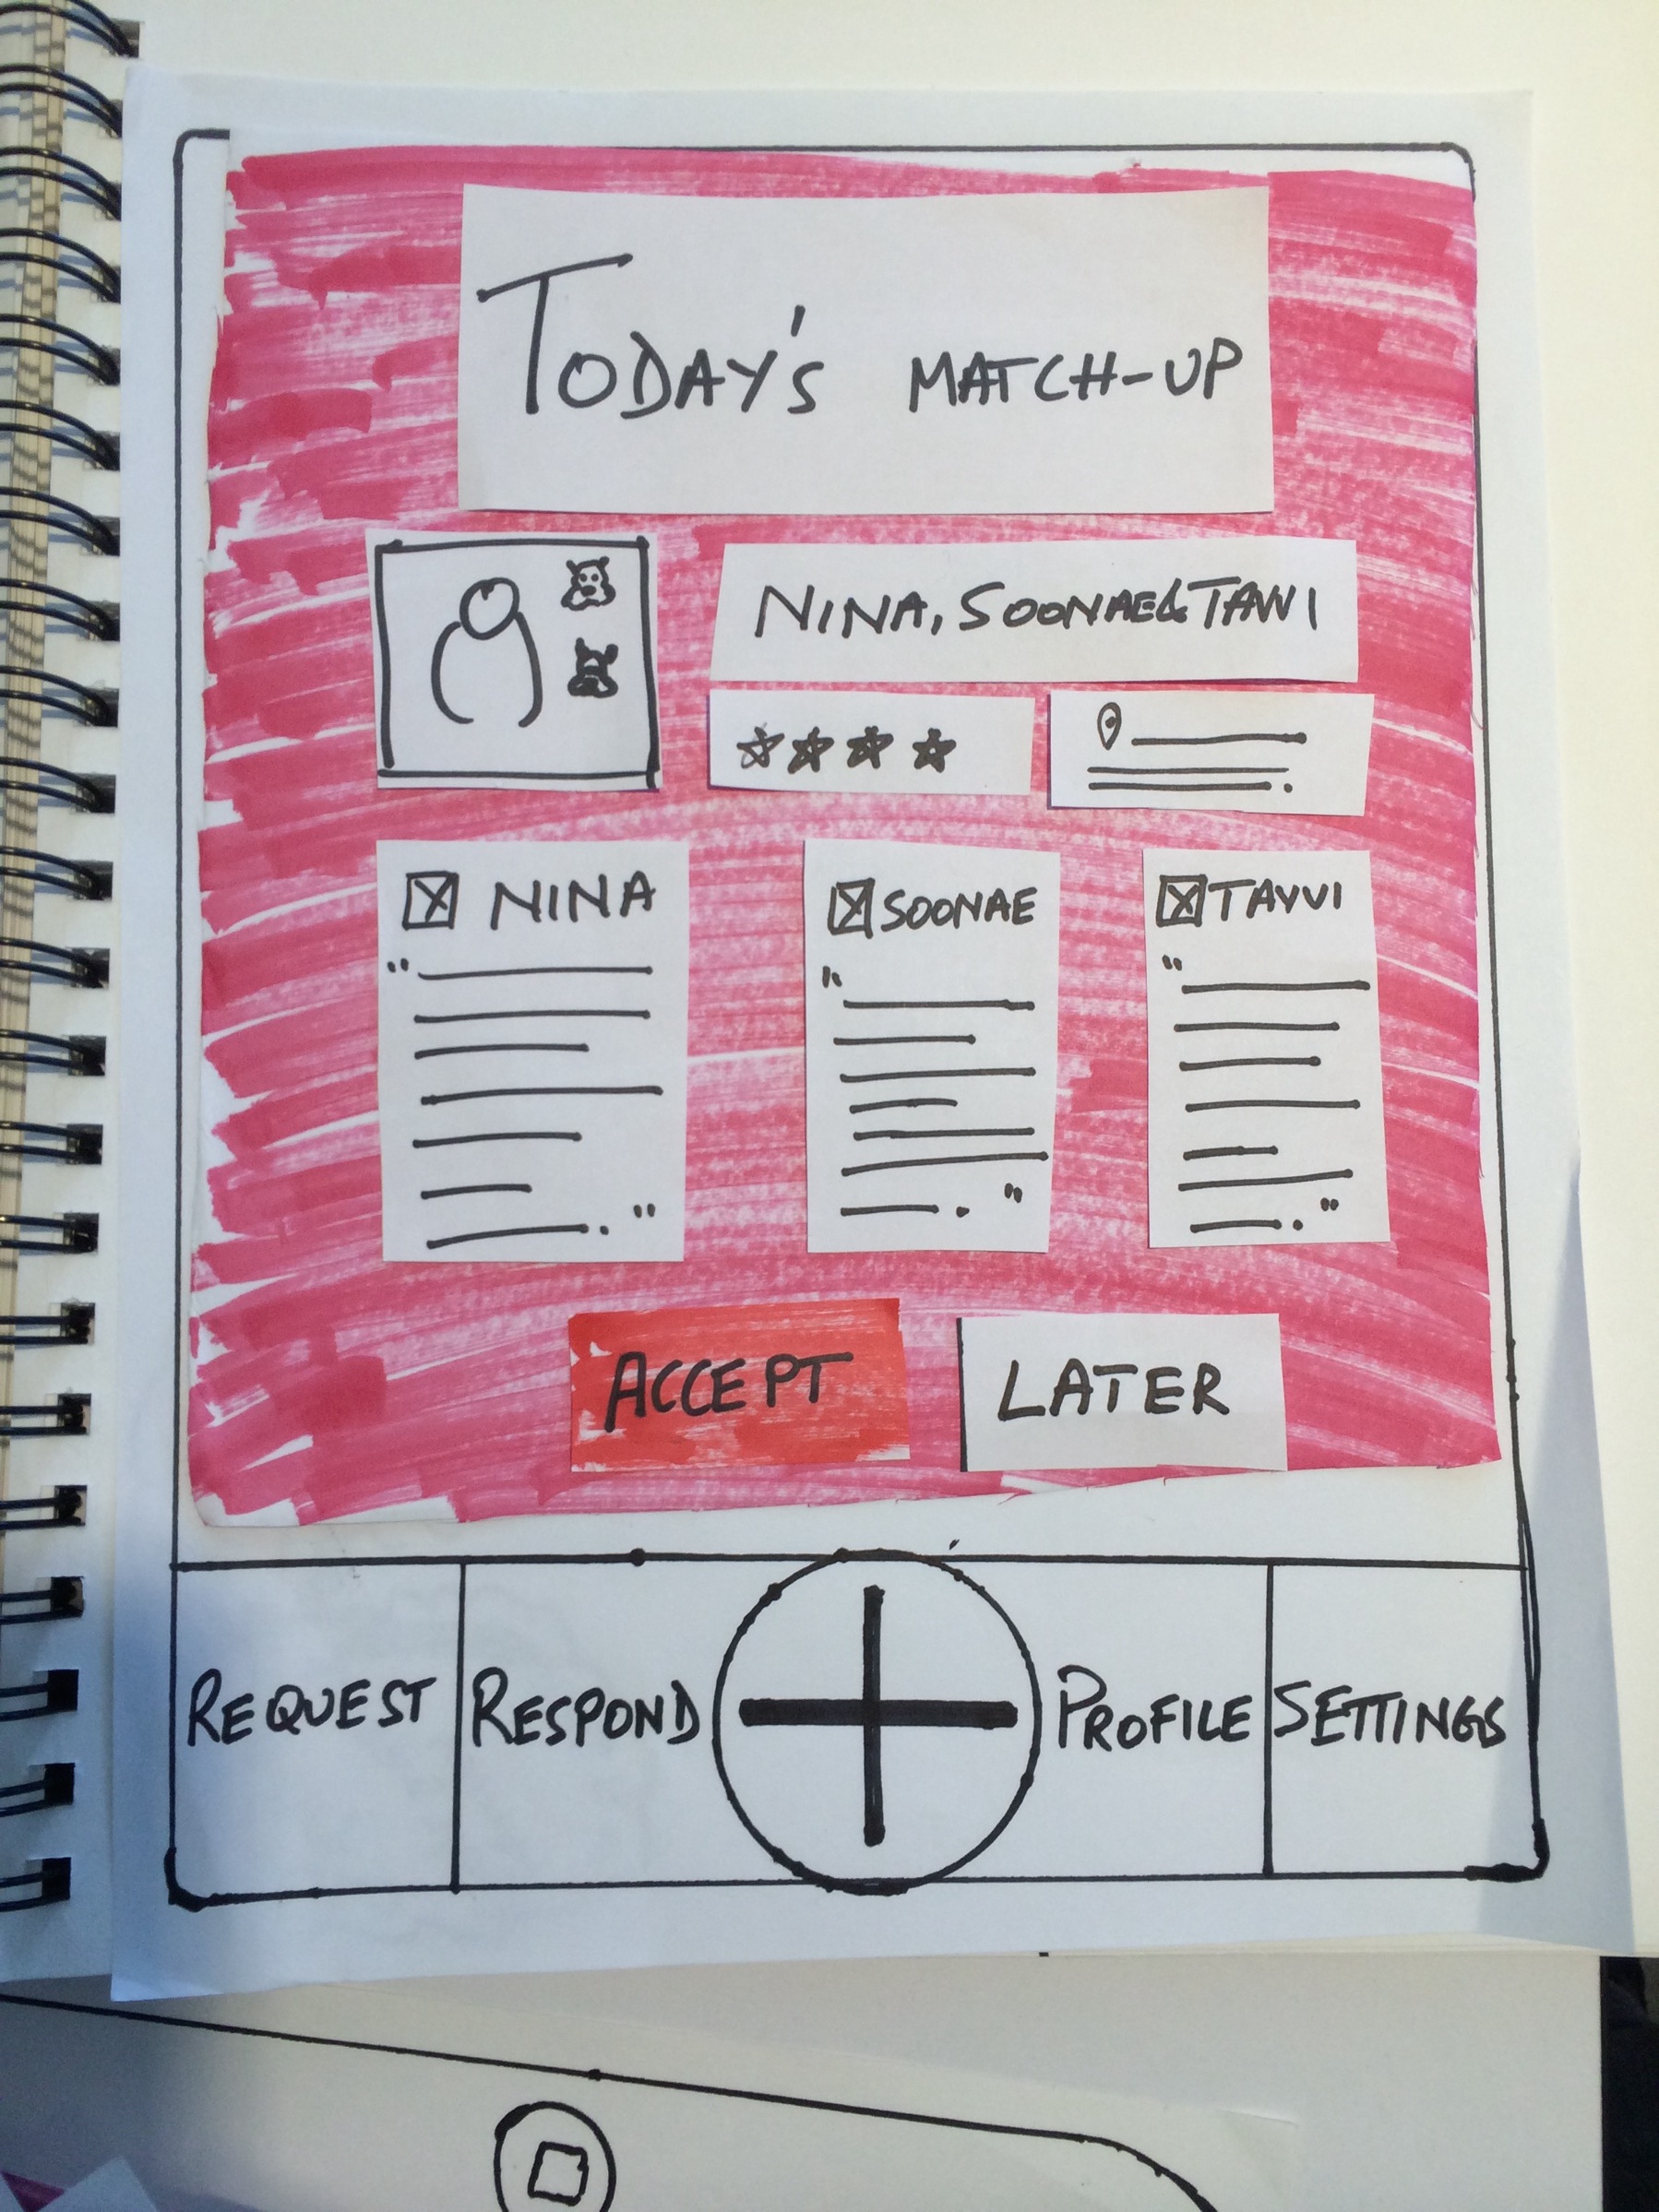 TODAY'S MATCH-UP
NINA, SOONAE & TAVVI
NINA
SOONAE
TAVVI
ACCEPT
LATER
REQUEST
RESPOND
PROFILE
SETTINGS